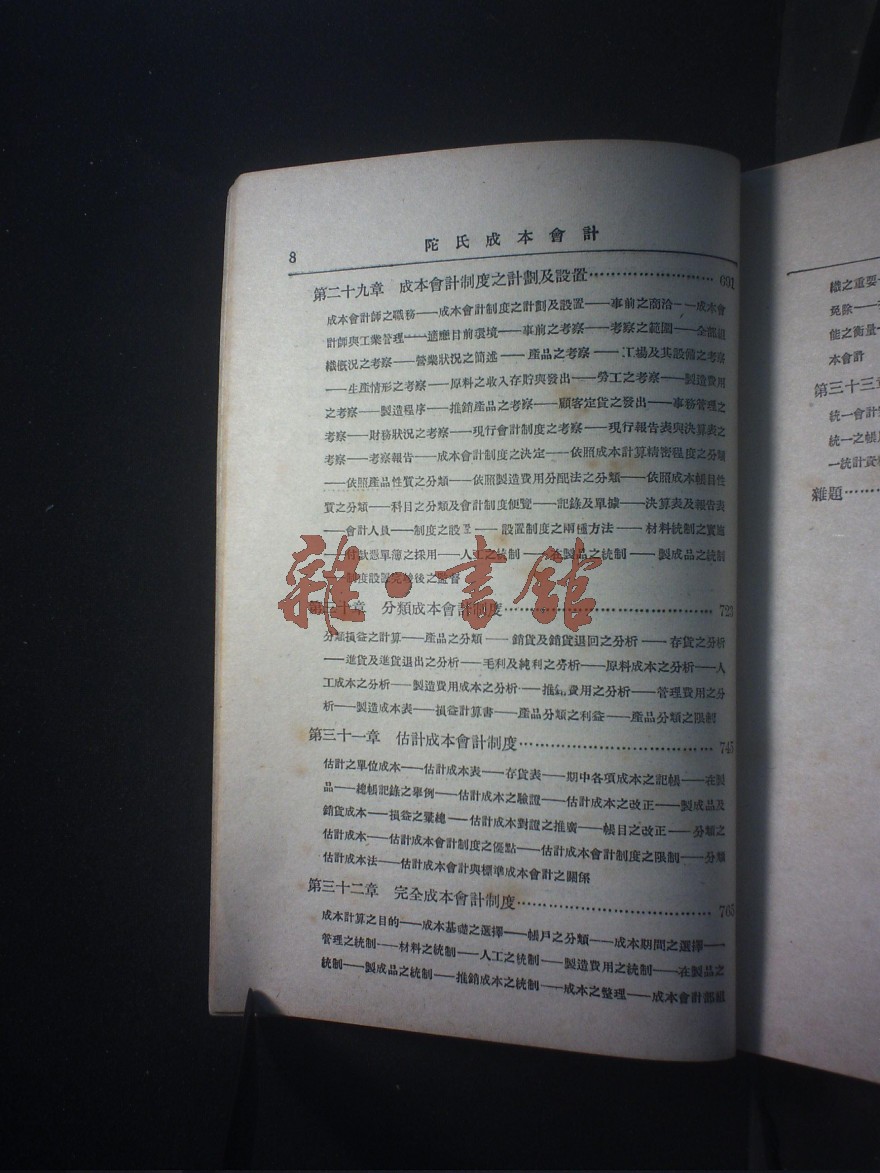 8
陀氏成本會計
第二十九章 成本會計制度之計劃及設置……………………691
成本會計師之職務——成本會計制度之計劃及設置——事前之商洽——成本會
計師與工業管理——適應目前環境——事前之考察——考察之範圍——全體組
織概況之考察——營業狀況之簡述——產品之考察——工場及其設備之考察
——生產情形之考察——原料之收入存貯與發出——勞工之考察——製造費用
之考察——製造程序——推銷產品之考察——顧客定貨之發出——事務管理之
考察——財務狀況之考察——現行會計制度之考察——現行報告表與決算表之
考察——考察報告——成本會計制度之決定——依照成本計算精密程度之分類
——依照產品性質之分類——依照製造費用分配法之分類——依照成本帳目性
質之分類——科目之分類及會計制度便覽——記錄及單據——決算表及報告表
——會計人員——制度之設置——設置制度之兩種方法——材料統制之實施
——付款憑單簿之採用——人工之統制——在製品之統制——製成品之統制
——制度設置完竣後之監督
第三十章 分類成本會計制度……………………723
分類損益之計算——產品之分類——銷貨及銷貨退回之分析——存貨之分析
——進貨及進貨退出之分析——毛利及純利之分析——原料成本之分析——人
工成本之分析——製造費用成本之分析——推銷費用之分析——管理費用之分
析——製造成本表——損益計算書——產品分類之利益——產品分類之限制
第三十一章 估計成本會計制度……………………745
估計之單位成本——估計成本表——存貨表——期中各項成本之記帳——在製
品——總帳記錄之舉例——估計成本之驗證——估計成本之改正——製成品及
銷貨成本——損益之彙總——估計成本對證之推廣——帳目之改正——分類之
估計成本——估計成本會計制度之優點——估計成本會計制度之限制——分類
估計成本法——估計成本會計與標準成本會計之關係
第三十二章 完全成本會計制度……………………765
成本計算之目的——成本基礎之選擇——帳戶之分類——成本期間之選擇——
管理之統制——材料之統制——人工之統制——製造費用之統制——在製品之
統制——製成品之統制——推銷成本之統制——成本之整理——成本會計部組
織之重要
免除——
能之衡量
本會計
第三十三
統一會計
統一之帳
一統計資
雜題……
雜·書館